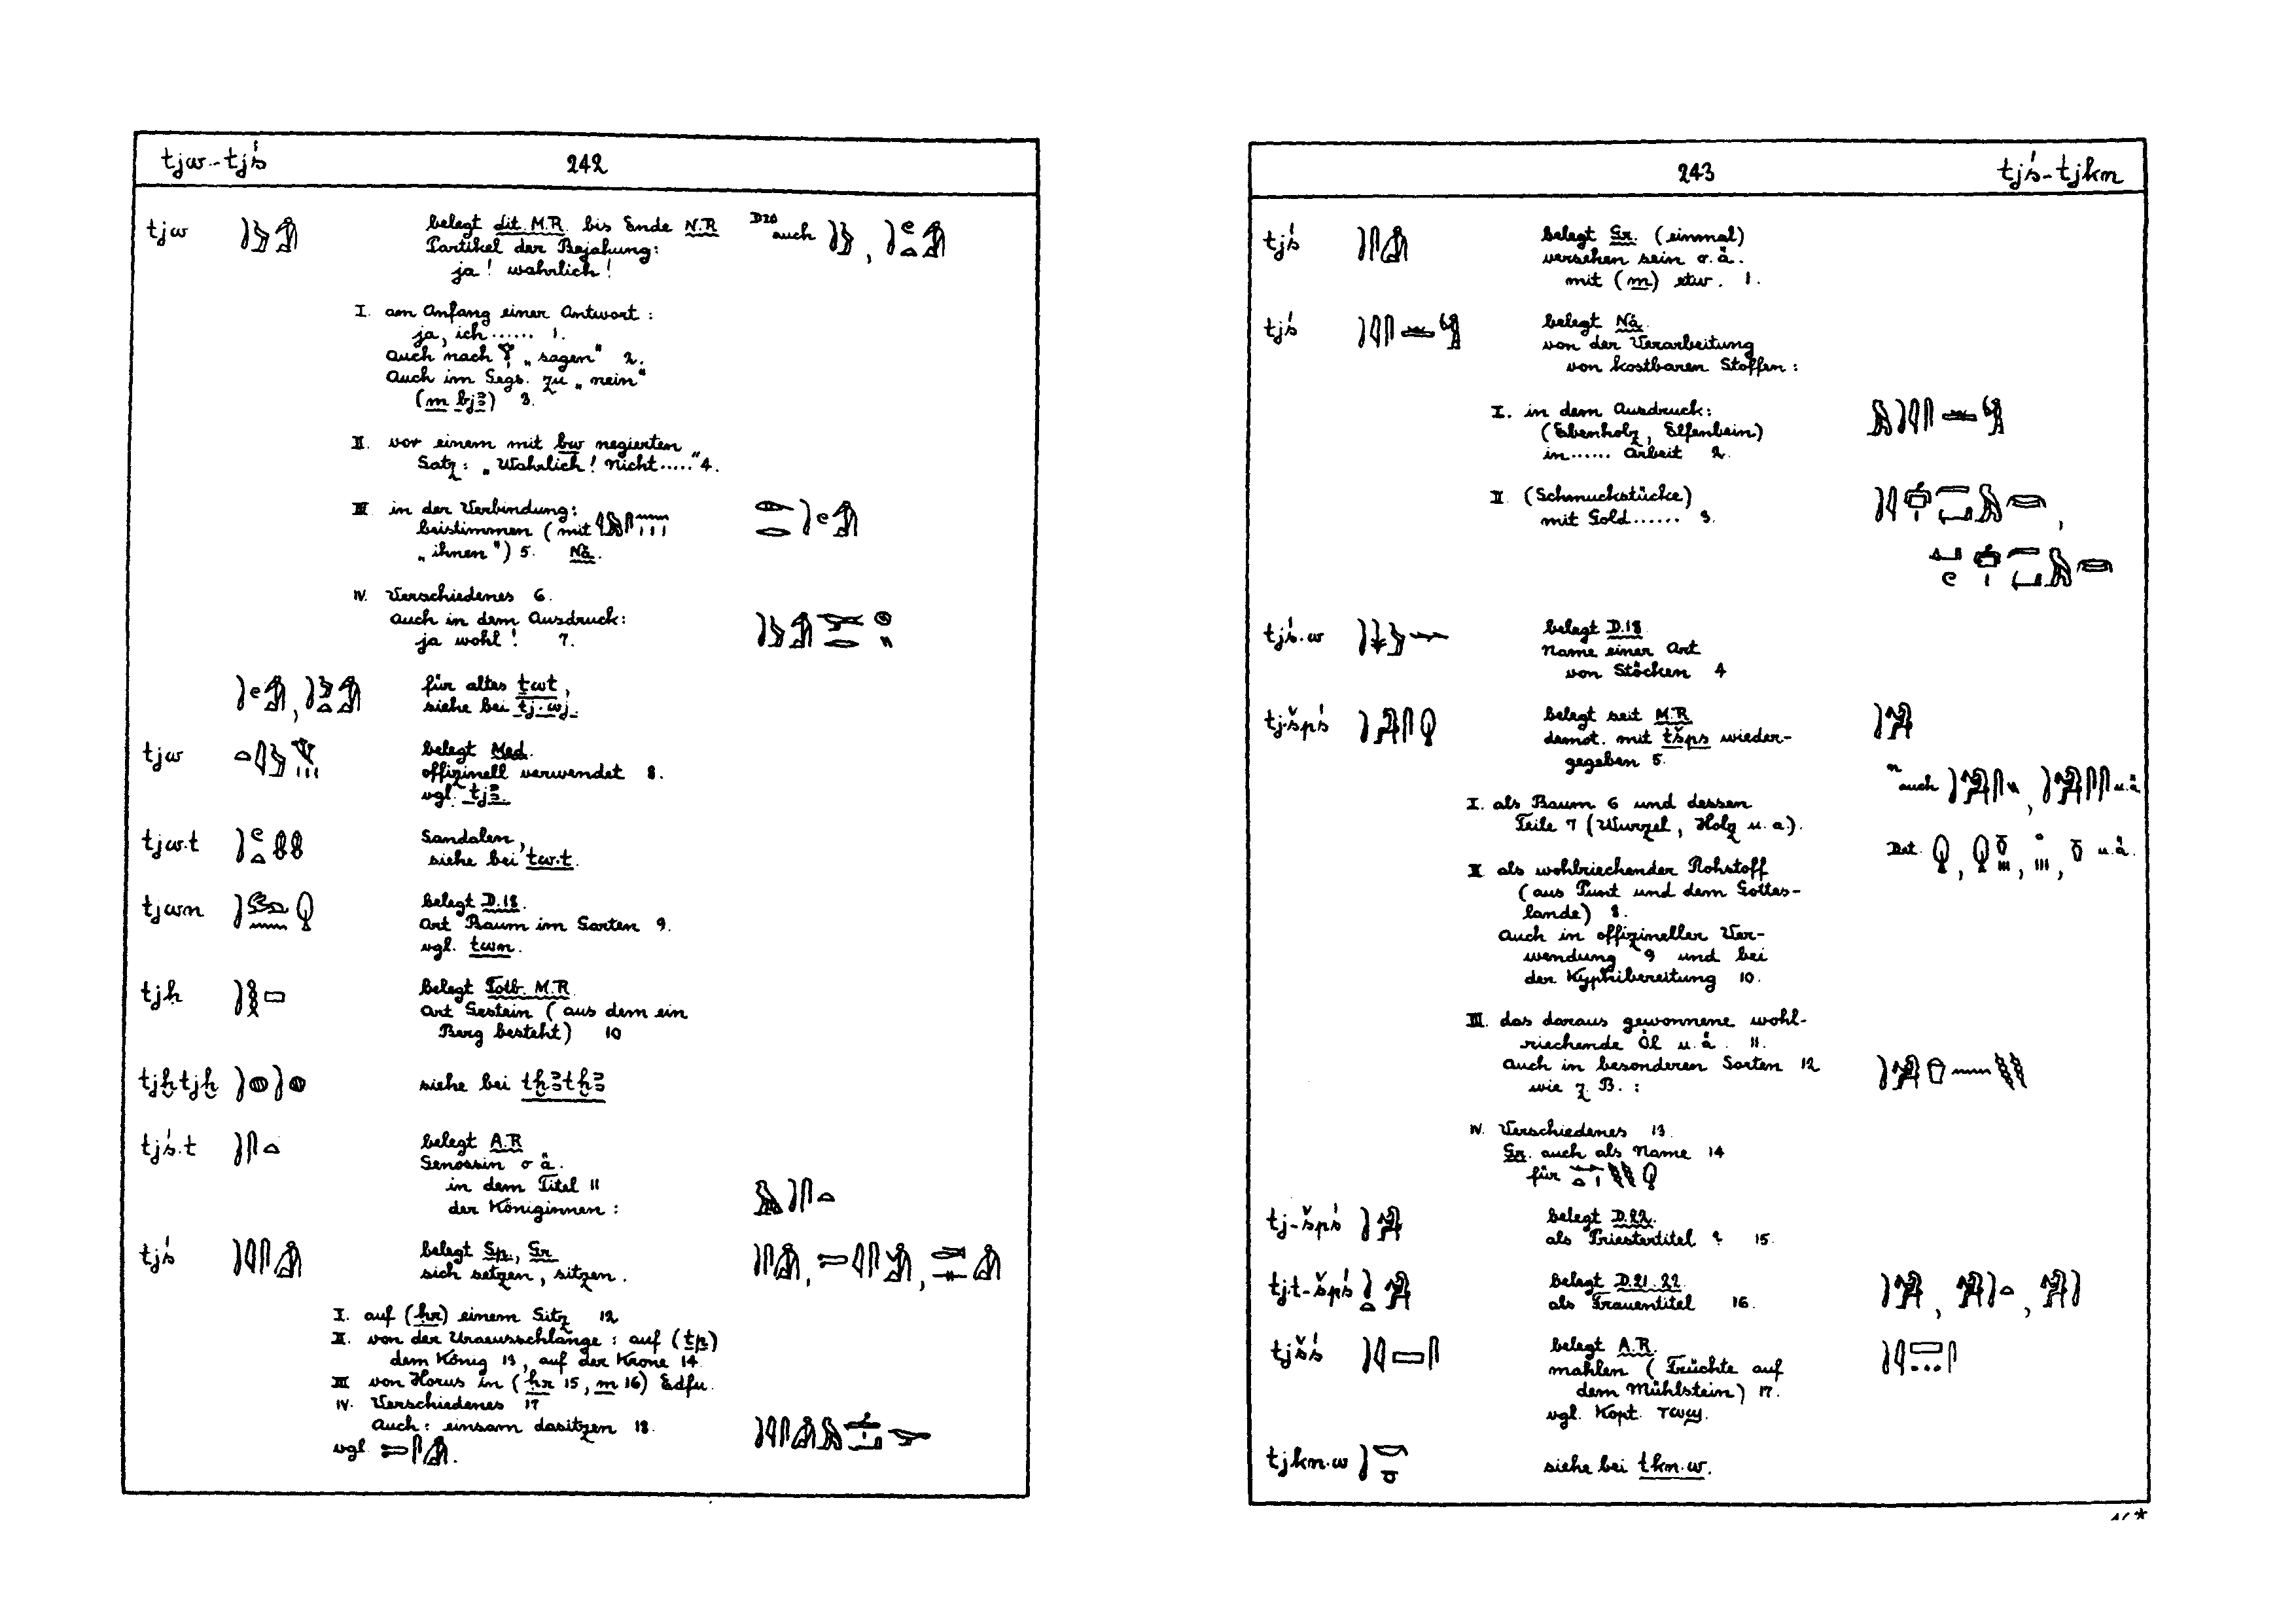 tjw-tjś
242
tjw
belegt dit. M.R. bis Ende N.R
Partikel der Bejahung:
ja! wahrlich!
D20 auch
I. am Anfang einer Antwort:
ja, ich...... 1.
auch nach „sagen" 2.
Auch im Gegs. zu „nein"
(m bjꜣ) 3.
II. vor einem mit bw negierten
Satz: „Wahrlich! nicht....." 4.
III in der Verbindung:
beistimmen (mit
„ihnen") 5. Nä.
IV. Verschiedenes 6.
Auch in dem Ausdruck:
ja wohl! 7.
für altes twt,
siehe bei tj.wj.
tjw
belegt Med.
offizinell verwendet 8.
vgl. tjꜣ.
tjw.t
Sandalen,
siehe bei tw.t.
tjwn
belegt D.18.
Art Baum im Garten 9.
vgl. twn.
tjḥ
belegt Totb. M.R.
Art Gestein (aus dem ein
Berg besteht) 10
tjḫtjḫ
siehe bei tḫꜣtḫꜣ
tjś.t
belegt A.R
Genossin o ä.
in dem Titel 11
der Königinnen:
tjś
belegt Sp., Gr.
sich setzen, sitzen.
I. auf (ḥr) einem Sitz 12
II. von der Uraeusschlange: auf (tp)
dem König 13, auf der Krone 14.
III von Horus in (ḥr 15, m 16) Edfu.
IV. Verschiedenes 17
Auch: einsam dasitzen 18.
vgl.
243
tjś-tjkn
tjś
belegt Gr. (einmal)
versehen sein o.ä.
mit (m) etw. 1.
tjś
belegt Nä.
von der Verarbeitung
von kostbaren Stoffen:
I. in dem Ausdruck:
(Ebenholz, Elfenbein)
in...... Arbeit 2.
II (Schmuckstücke)
mit Gold...... 3.
tjś.w
belegt D.18
Name einer Art
von Stöcken 4
tj-špś
belegt seit M.R
demot. mit tšps wieder-
gegeben 5.
auch u.ä
I. als Baum 6 und dessen
Teile 7 (Wurzel, Holz u.a.).
Det. u.ä.
II als wohlriechender Rohstoff
(aus Punt und dem Gottes-
lande) 8.
Auch in offizineller Ver-
wendung 9 und bei
der Kyphibereitung 10.
III. das daraus gewonnene wohl-
riechende Öl u.ä. 11.
auch in besonderen Sorten 12
wie z. B.:
IV. Verschiedenes 13.
Gr. auch als Name 14
für
tj-špś
belegt D.22.
als Priestertitel ? 15.
tjt-špś
belegt D.21.22.
als Frauentitel 16.
tjšś
belegt A.R.
mahlen (Früchte auf
dem Mühlstein) 17.
vgl. Kopt. ⲧⲱϣ.
tjkn.w
siehe bei tkn.w.
16*